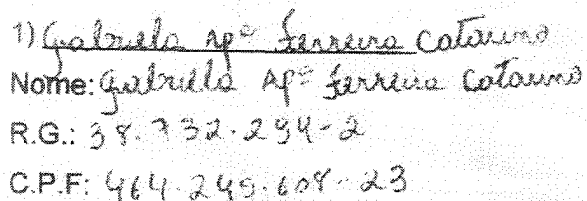 1) Gabriela Apª Ferreira Catarino
Nome: Gabriela Apª Ferreira Catarino
R.G.: 38.732.294-2
C.P.F: 464.249.608-23